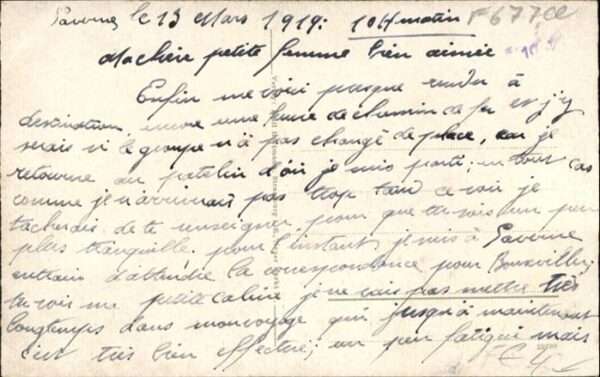 Saverne le 13 Mars 1919: 10H matin
F677
Ma chère petite femme bien aimée
Enfin me voici presque rendu à
destination, encore une heure de chemin de fer et j'y
serais si le groupe n'a pas changé de place, car je
retourne au patelin d'où je suis parti; en tout cas
comme je n'arriverais pas trop tard ce soir je
tacherais de te renseigner pour que tu sois un peu
plus tranquille, pour l'instant je suis à Saverne
entrain d'attendre la correspondance pour Bouxwiller;
tu vois ma petite caline je ne vais pas mettre très
longtemps dans mon voyage qui jusqu'à maintenant
c'est très bien effectué; un peu fatigué mais